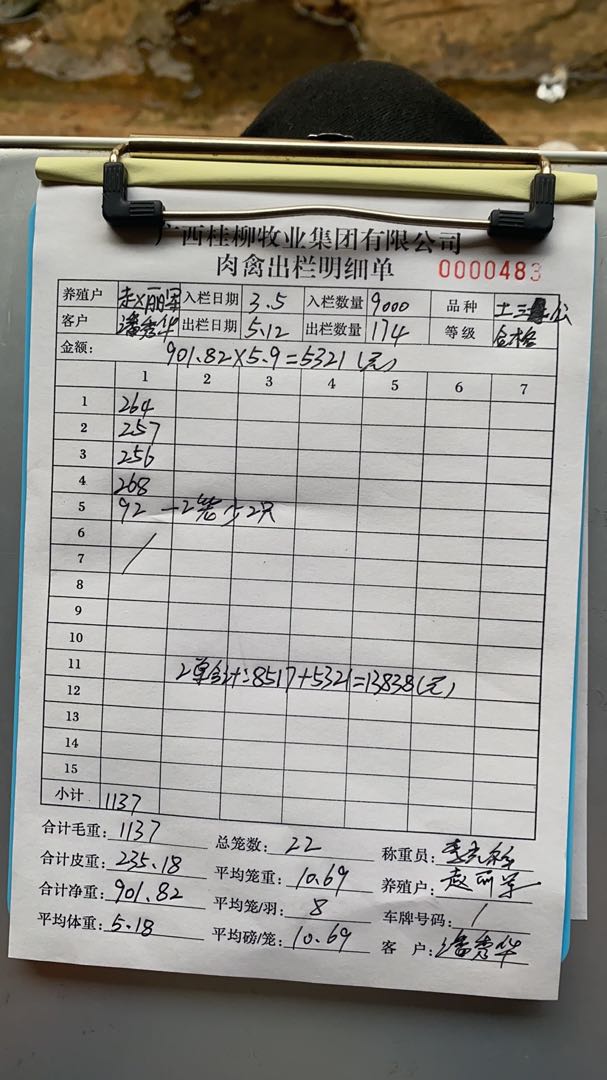 广西桂柳牧业集团有限公司
肉禽出栏明细单 0000483
养殖户 赵丽军 入栏日期 3.5 入栏数量 9000 品种 土三 公
客户 潘秀华 出栏日期 5.12 出栏数量 174 等级 合格
金额: 901.82×5.9=5321(元)
1 2 3 4 5 6 7
1 264
2 257
3 256
4 268
5 92 一2笼少2只
6
7 /
8
9
10
11
2单合计:8517+5321=13838(元)
12
13
14
15
小计 1137
合计毛重: 1137 总笼数: 22 称重员:
合计皮重: 235.18 平均笼重: 10.69 养殖户: 赵丽军
合计净重: 901.82 平均笼/羽: 8 车牌号码: /
平均体重: 5.18 平均磅/笼: 10.69 客 户: 潘秀华